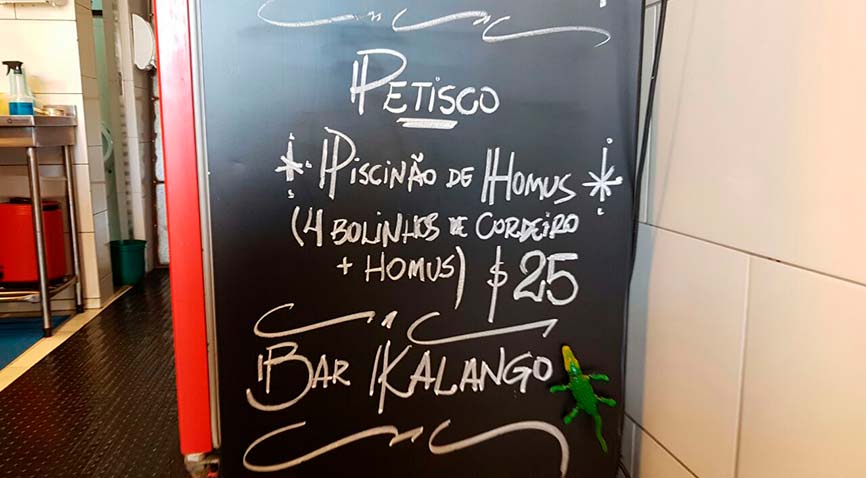 PETISCO
* PISCINÃO DE HOMUS *
(4 BOLINHOS DE CORDEIRO
+ HOMUS) $ 25
BAR KALANGO